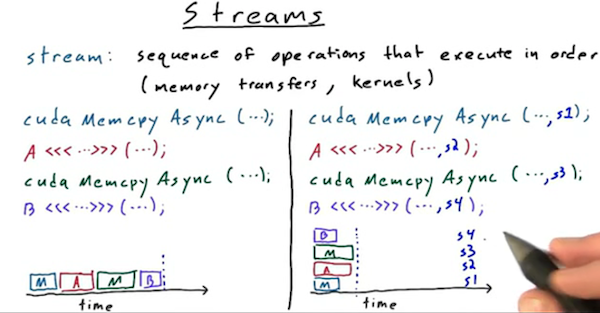 Streams
stream: sequence of operations that execute in order
(memory transfers, kernels)
cuda Memcpy Async (...);
A <<< ... >>> (...);
cuda Memcpy Async (...);
B <<< ... >>> (...);
M A M B
time
cuda Memcpy Async (..., s1);
A <<< ... >>> (..., s2);
cuda Memcpy Async (..., s3);
B <<< ... >>> (..., s4);
B s4
M s3
A s2
M s1
time